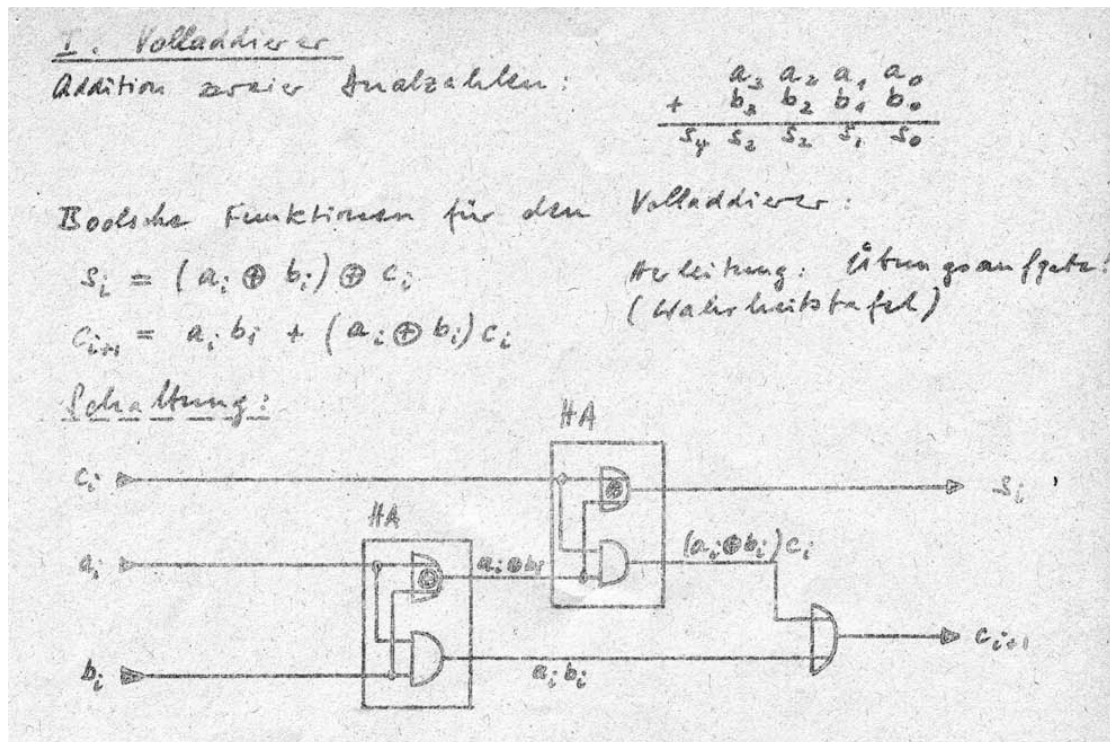 I. Volladdierer
Addition zweier Dualzahlen:
a₃ a₂ a₁ a₀
+ b₃ b₂ b₁ b₀
s₄ s₂ s₂ s₁ s₀
Boolsche Funktionen für den Volladdierer:
sᵢ = (aᵢ ⊕ bᵢ) ⊕ cᵢ
Herleitung: Übungsaufgabe!
(Wahrheitstafel)
cᵢ₊₁ = aᵢ bᵢ + (aᵢ ⊕ bᵢ) cᵢ
Schaltung:
HA
cᵢ
sᵢ
HA
aᵢ
aᵢ⊕bᵢ
(aᵢ⊕bᵢ)cᵢ
cᵢ₊₁
bᵢ
aᵢbᵢ